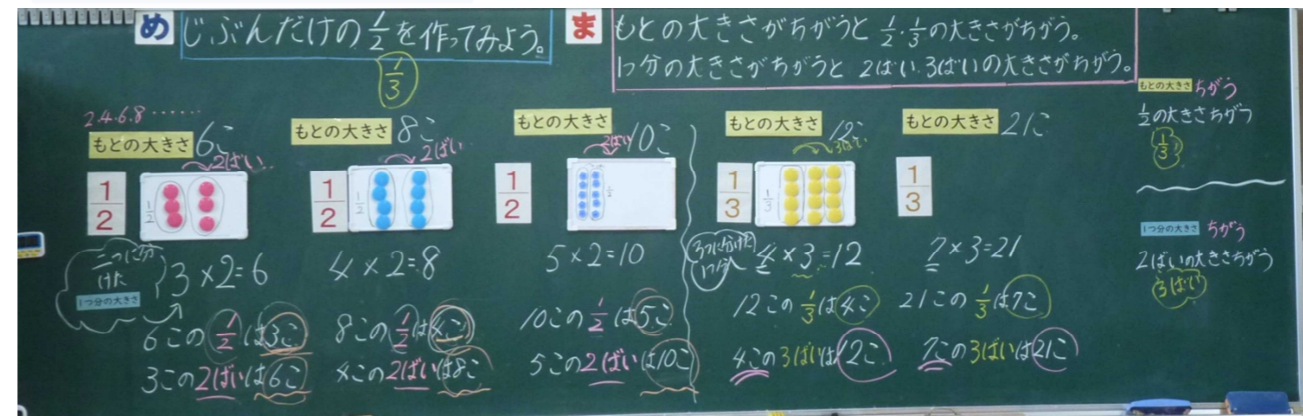 め じぶんだけの1/2を作ってみよう。
1/3
ま もとの大きさがちがうと 1/2・1/3の大きさがちがう。
1つ分の大きさがちがうと 2ばい、3ばいの大きさがちがう。
2.4.6.8……
もとの大きさ 6こ
2ばい
1/2
1/2
二つに分けた
1つ分の大きさ
3×2=6
6この1/2は3こ
3この2ばいは6こ
もとの大きさ 8こ
2ばい
1/2
1/2
4×2=8
8この1/2は4こ
4この2ばいは8こ
もとの大きさ 10こ
2ばい
1/2
1/2
5×2=10
10この1/2は5こ
5この2ばいは10こ
もとの大きさ 12こ
3ばい
1/3
1/3
3つに分けた
1つ分
4×3=12
12この1/3は4こ
4この3ばいは12こ
もとの大きさ 21こ
1/3
7×3=21
21この1/3は7こ
7この3ばいは21こ
もとの大きさ ちがう
1/2の大きさちがう
1/3
1つ分の大きさ ちがう
2ばいの大きさちがう
3ばい